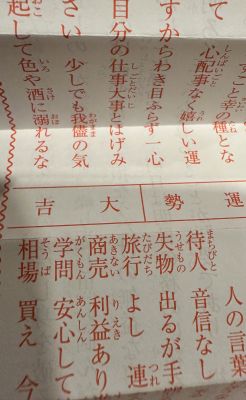 て
すること幸の種とな
心配事なく嬉しい運
すからわき目ふらず一心
自分の仕事大事とはげみ
さい 少しでも我儘の気
起して色や酒に溺れるな
運勢 大吉
人の言葉
待人 音信なし
失物 出るが手
旅行 よし 連
商売 利益あり
学問 安心して
相場 買え 今